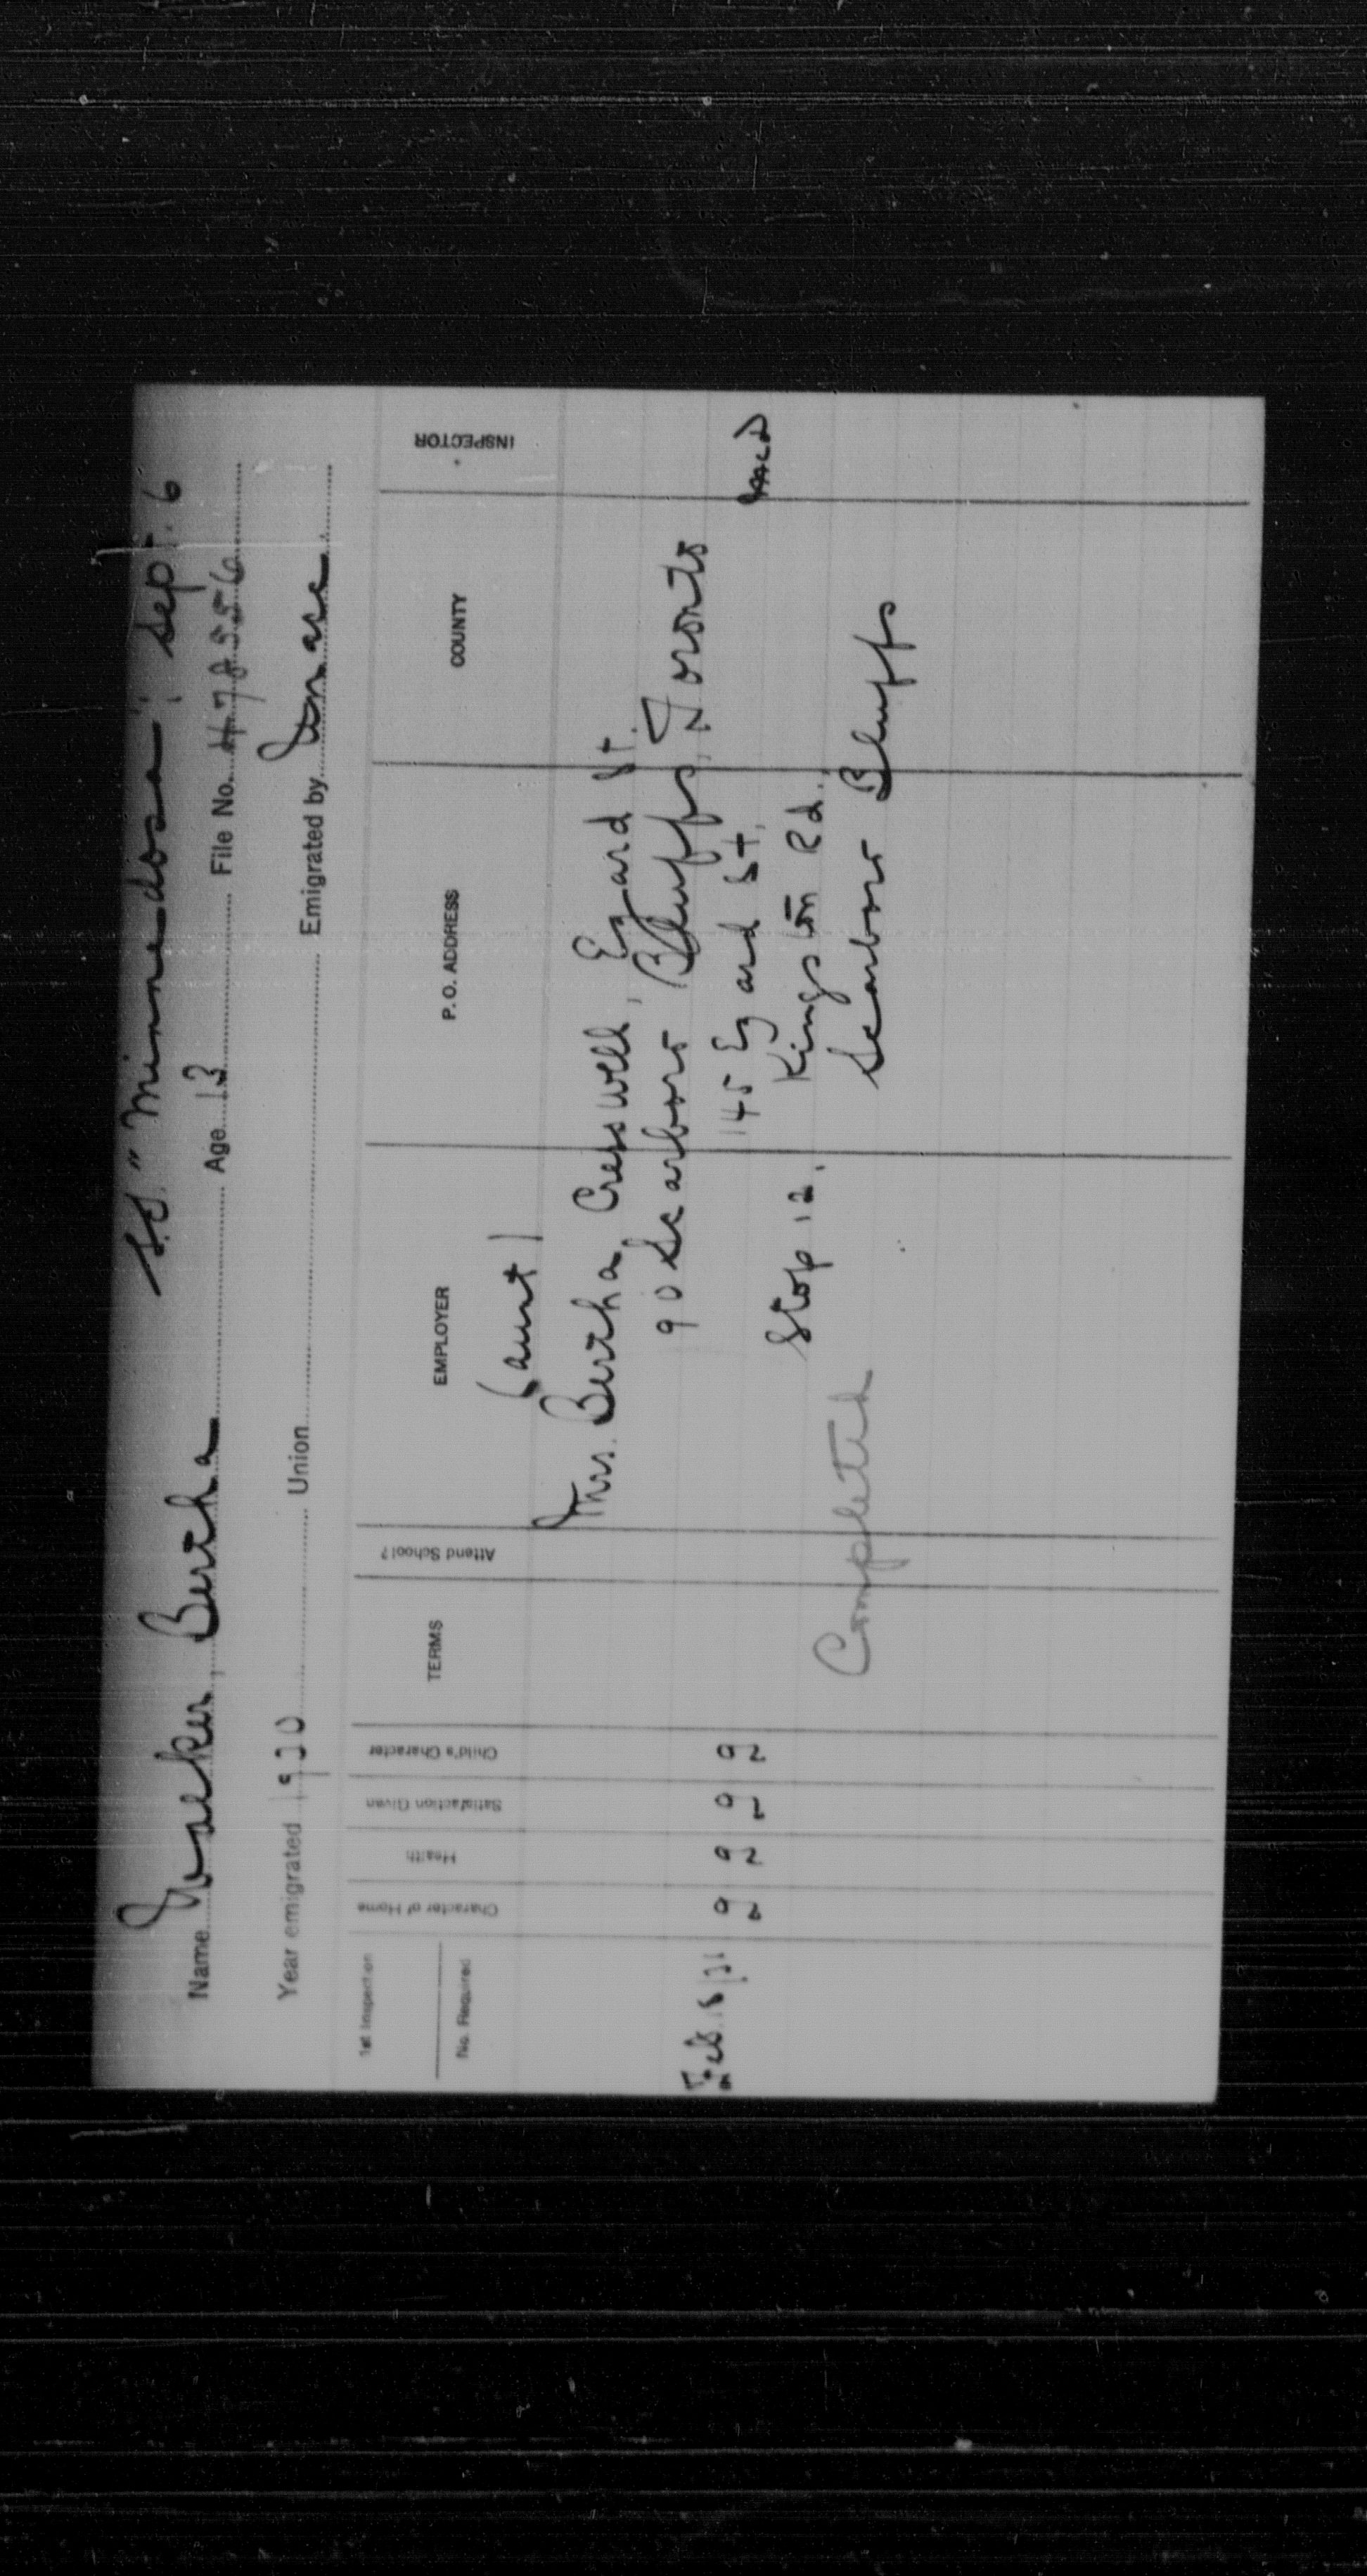 S.S. "Minnedosa"; Sept. 6
Name Walker, Bertha Age 13 File No.
Year emigrated 1920 Union Emigrated by
1st Inspection
No. Required
Character of Home
Health
Satisfaction Given
Child's Character
TERMS
Attend School?
EMPLOYER
P. O. ADDRESS
COUNTY
INSPECTOR
(aunt)
Mrs. Bertha Cresswell, Ezard St.
90 Scarboro Bluffs, Toronto
Feb. 18/21 145 Ezard St.
Stop 12, Kingston Rd.,
Scarboro Bluffs
Completed